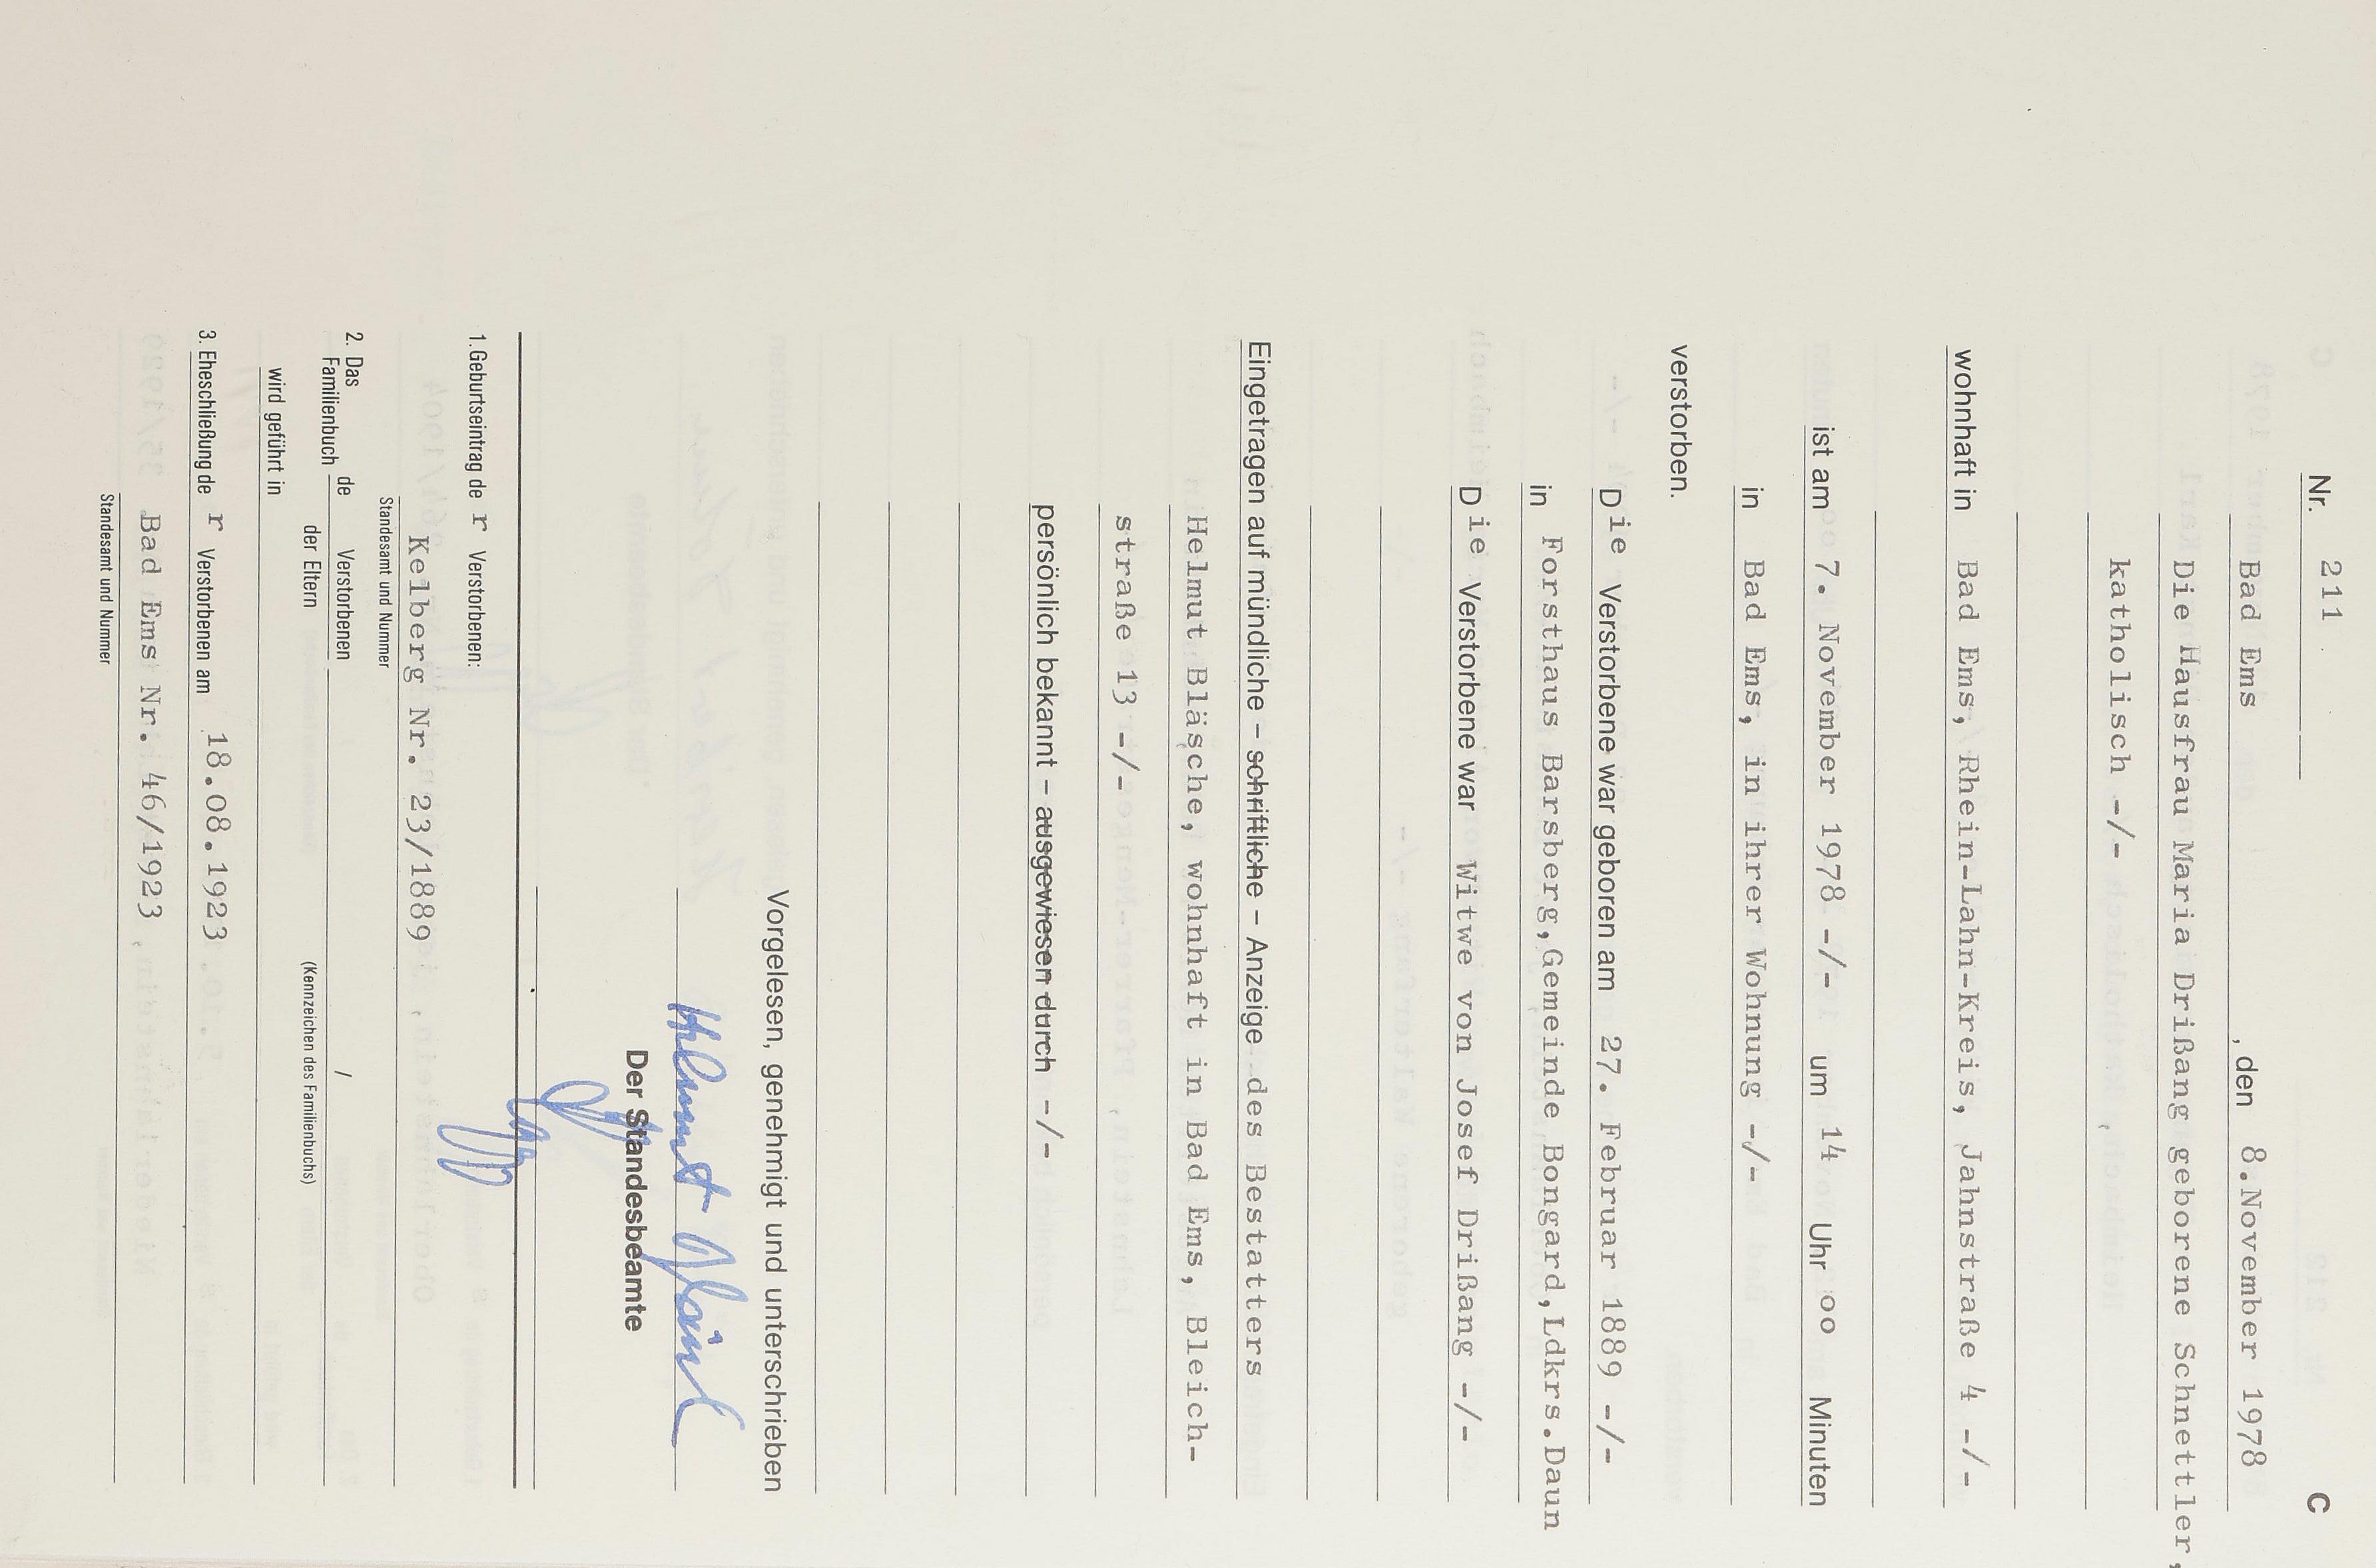 Nr. 211 C
Bad Ems , den 8.November 1978
Die Hausfrau Maria Drißang geborene Schnettler,
katholisch -/-
wohnhaft in Bad Ems, Rhein-Lahn-Kreis, Jahnstraße 4 -/-
ist am 7. November 1978 -/- um 14 Uhr oo Minuten
in Bad Ems, in ihrer Wohnung -/-
verstorben.
Die Verstorbene war geboren am 27. Februar 1889 -/-
in Forsthaus Barsberg,Gemeinde Bongard,Ldkrs.Daun
Die Verstorbene war Witwe von Josef Drißang -/-
Eingetragen auf mündliche – schriftliche – Anzeige des Bestatters
Helmut Bläsche, wohnhaft in Bad Ems, Bleich-
straße 13 -/-
persönlich bekannt – ausgewiesen durch -/-
Vorgelesen, genehmigt und unterschrieben
Helmut
Der Standesbeamte
1.Geburtseintrag der Verstorbenen:
Kelberg Nr. 23/1889
Standesamt und Nummer
2. Das Familienbuch de Verstorbenen /
der Eltern (Kennzeichen des Familienbuchs)
wird geführt in
3. Eheschließung der Verstorbenen am 18.08.1923
Bad Ems Nr. 46/1923
Standesamt und Nummer